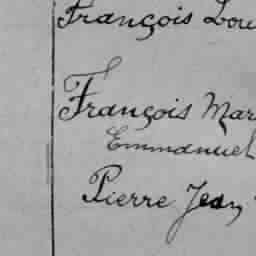 François Lou
François Mar
Emmanuel
Pierre Jean